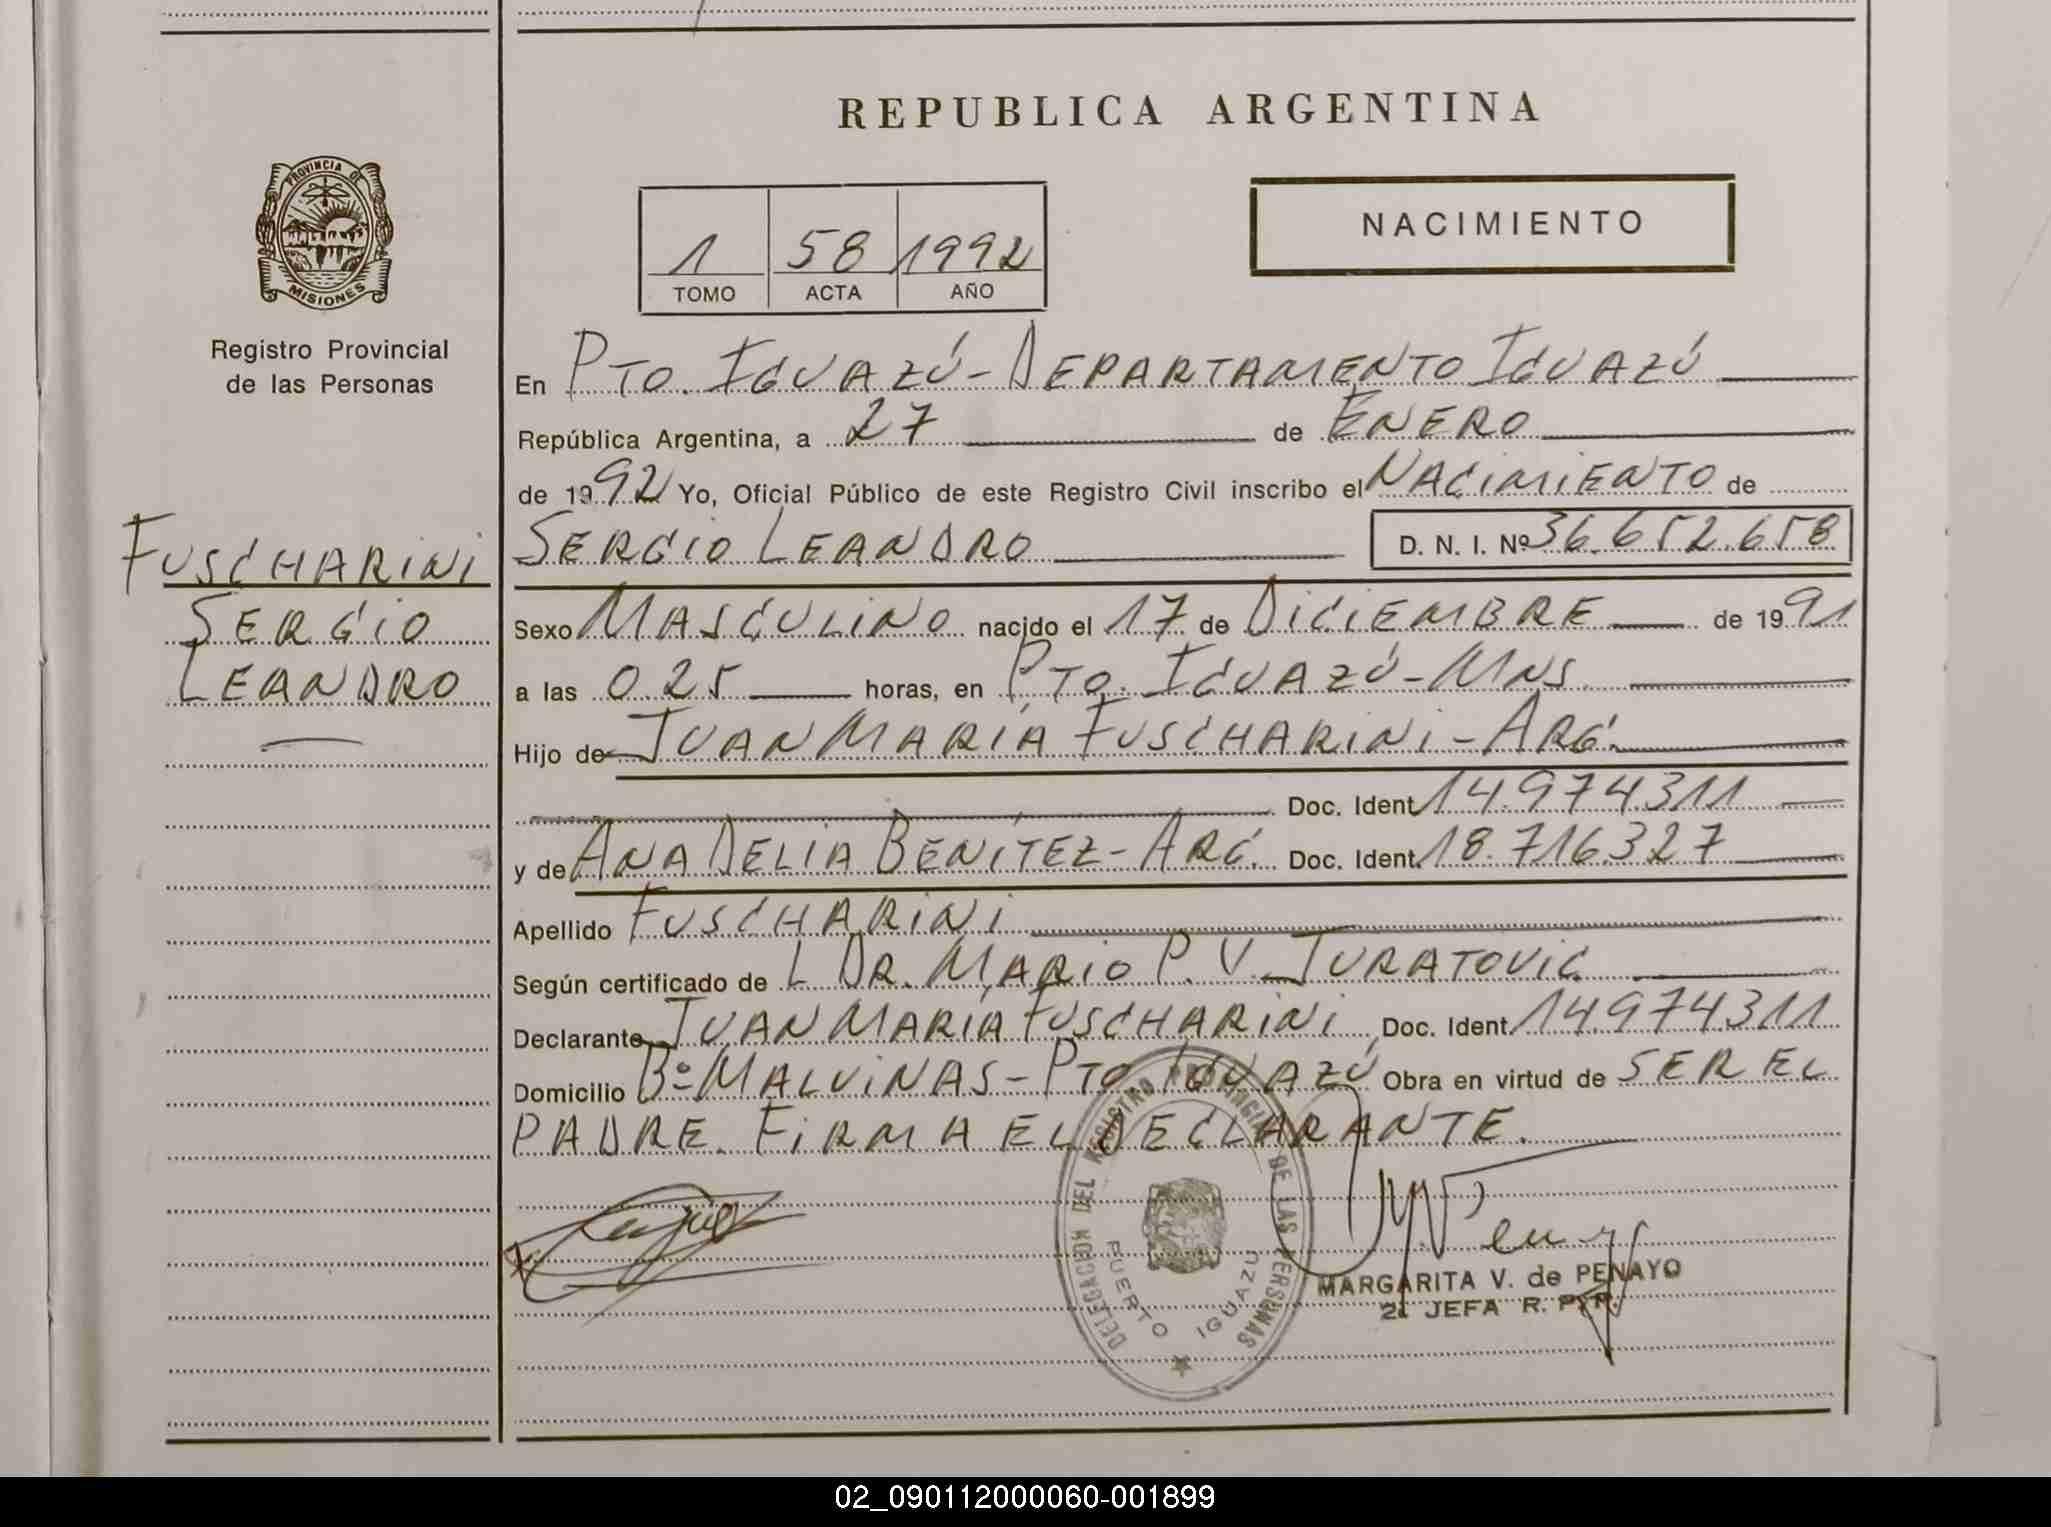 REPUBLICA ARGENTINA
PROVINCIA DE
MISIONES
Registro Provincial
de las Personas
1 58 1992
TOMO ACTA AÑO
NACIMIENTO
En PTO. IGUAZÚ - DEPARTAMENTO IGUAZÚ
República Argentina, a 27 de ENERO
de 1992 Yo, Oficial Público de este Registro Civil inscribo el NACIMIENTO de
SERGIO LEANDRO D. N. I. Nº 36.652.658
FUSCHARINI
SERGIO
LEANDRO
Sexo MASCULINO nacido el 17 de DICIEMBRE de 1991
a las 0.25 horas, en PTO. IGUAZÚ - MNS.
Hijo de JUAN MARÍA FUSCHARINI - ARG.
Doc. Ident. 14.974.311
y de ANA DELIA BENÍTEZ - ARG. Doc. Ident. 18.716.327
Apellido FUSCHARINI
Según certificado de L DR. MARIO P. V. JURATOVIC
Declarante JUAN MARÍA FUSCHARINI Doc. Ident. 14.974.311
Domicilio Bº MALVINAS - PTO IGUAZÚ Obra en virtud de SER EL
PADRE. FIRMA EL DECLARANTE.
DELEGACION DEL REGISTRO PROVINCIAL DE LAS PERSONAS
PUERTO IGUAZU
MARGARITA V. de PENAYO
2ª JEFA R. P. P.
02_090112000060-001899